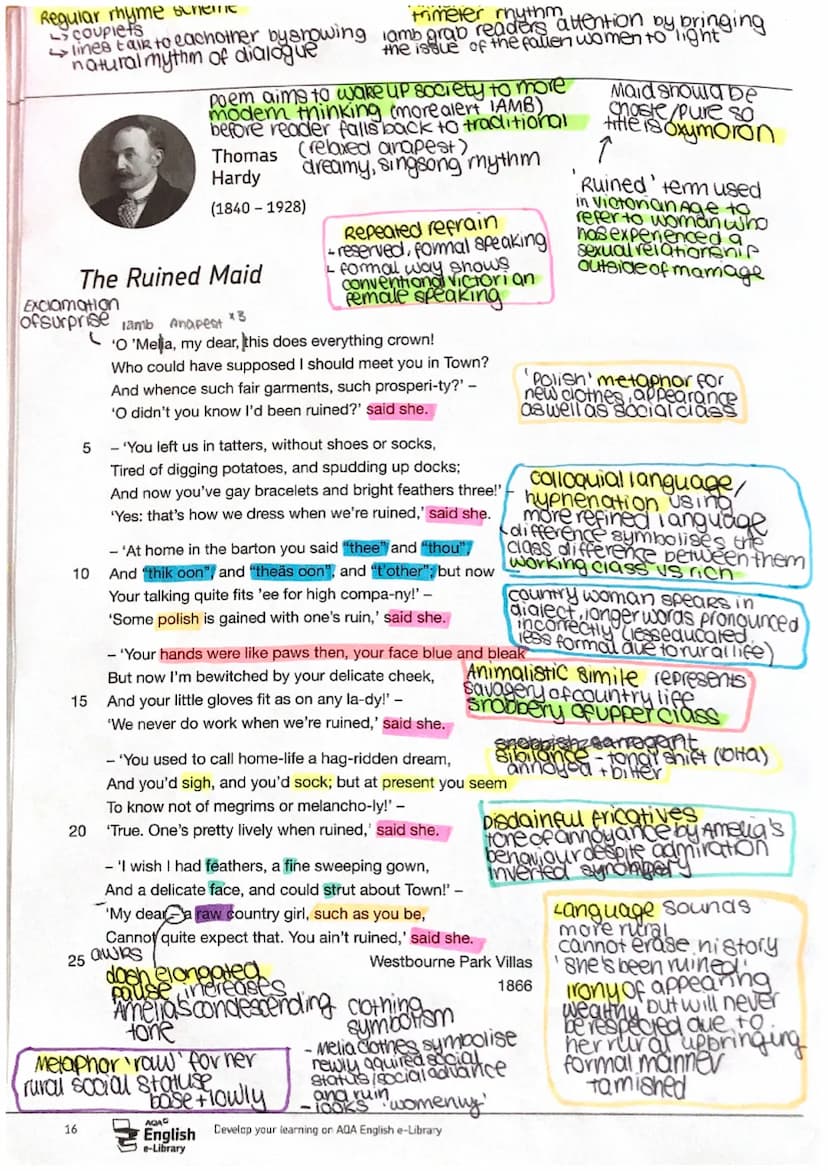 Regular rhyme scheme
↳ couplets
↳ lines talk to eachother by showing
natural mythm of dialogue
trimeter rhythm
iamb grab readers attention by bringing
the issue of the fallen women to light
poem aims to wake up society to more
modern thinking (more alert IAMB)
before reader falls back to traditional
(relaxed anapest)
dreamy, singsong rhythm
Maid should be
chaste/pure so
title is oxymoron
'Ruined' term used
in Victorian Age to
refer to woman who
has experienced a
sexual relationship
outside of marriage
Thomas
Hardy
(1840 – 1928)
Repeated refrain
- reserved, formal speaking
- formal way shows
conventional victorian
female speaking
The Ruined Maid
Exclamation
of surprise
iamb Anapest x3
'O 'Melia, my dear, this does everything crown!
Who could have supposed I should meet you in Town?
And whence such fair garments, such prosperi-ty?' –
'O didn't you know I'd been ruined?' said she.
'Polish' metaphor for
new clothes, appearance
as well as social class
5 – 'You left us in tatters, without shoes or socks,
Tired of digging potatoes, and spudding up docks;
And now you've gay bracelets and bright feathers three!' –
'Yes: that's how we dress when we're ruined,' said she.
colloquial language/
hyphenation using
more refined language
difference symbolises the
class difference between them
working class vs rich
– 'At home in the barton you said "thee" and "thou",
10 And "thik oon", and "theäs oon", and "t'other"; but now
Your talking quite fits 'ee for high compa-ny!' –
'Some polish is gained with one's ruin,' said she.
country woman speaks in
dialect, longer words pronounced
incorrectly (less educated,
less formal due to rural life)
– 'Your hands were like paws then, your face blue and bleak
But now I'm bewitched by your delicate cheek,
15 And your little gloves fit as on any la-dy!' –
'We never do work when we're ruined,' said she.
Animalistic simile represents
savagery of country life
snobbery of upper class
– 'You used to call home-life a hag-ridden dream,
And you'd sigh, and you'd sock; but at present you seem
To know not of megrims or melancho-ly!' –
20 'True. One's pretty lively when ruined,' said she.
sibilance - tonal shift (volta)
annoyed + bitter
Disdainful fricatives
tone of annoyance by Amelia's
behaviour despite admiration
inverted
– 'I wish I had feathers, a fine sweeping gown,
And a delicate face, and could strut about Town!' –
'My dear – a raw country girl, such as you be,
Cannot quite expect that. You ain't ruined,' said she.
25 Westbourne Park Villas
1866
awks
dash elongated
pause increases
Amelia's condescending
tone
Language sounds
more rural
cannot erase history
'she's been ruined'
irony of appearing
wealthy, but will never
be respected due to
her rural upbringing
formal manner
tarnished
clothing
symbolism
- Melia clothes symbolise
newly aquired social
status/social advance
and ruin
- looks 'womenly'
Metaphor 'raw' for her
rural social status
base + lowly
16
AQA
English
e-Library
Develop your learning on AQA English e-Library